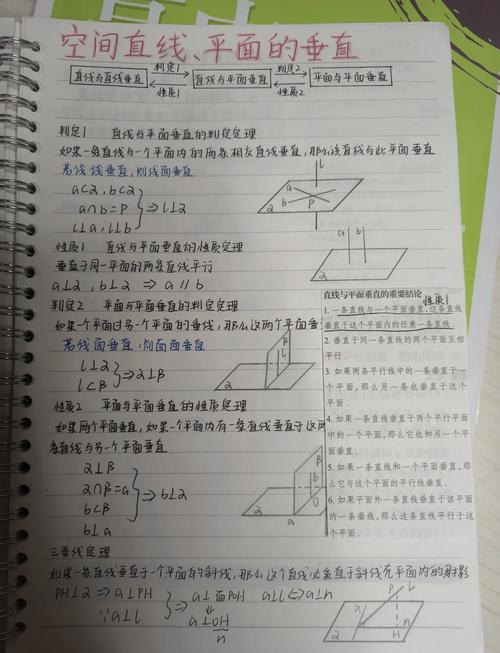 空间直线、平面的垂直
直线与直线垂直 判定1 性质1 直线与平面垂直 判定2 性质2 平面与平面垂直
判定1 直线与平面垂直的判定定理
如果一条直线与一个平面内的两条相交直线垂直,那么该直线与此平面垂直
若线线垂直,则线面垂直
a⊂2, b⊂2
a∩b=P ⇒ l⊥2
l⊥a, l⊥b
l
a
b P
2
性质1 直线与平面垂直的性质定理
垂直于同一平面的两条直线平行
a⊥2, b⊥2 ⇒ a∥b
a b
2
判定2 平面与平面垂直的判定定理
如果一个平面过另一个平面的垂线,那么这两个平面垂
若线面垂直,则面面垂直
l⊥2
l⊂β ⇒ 2⊥β
β
l
2
性质2 平面与平面垂直的性质定理
如果两个平面垂直,如果一个平面内有一条直线垂直于这两
条直线与另一个平面垂直
2⊥β
2∩β=a ⇒ b⊥2
b⊂β
b⊥a
β
b
2 O
a
直线与平面垂直的重要结论 性质1
1. 一条直线与一个平面垂直,这条直线
垂直于这个平面内的任意一条直线.
2. 垂直于同一条直线的两个平面互相
平行.
3. 如果两条平行线中的一条垂直于一
个平面,那么另一条也垂直于这个
平面.
4. 如果一条直线垂直于两个平行平面
中的一个平面,那么它也和另一个平
面垂直.
5. 如果一条直线和一个平面垂直,那
么它与这个平面的平行线垂直.
6. 如果平面外一条直线垂直于该平面
的一条垂线,那么这条直线平行于这
个平面.
三垂线定理
如果一条直线垂直于一个平面的斜线,那么这个直线必垂直于斜线在平面内的射影
PH⊥2 ⇒ a⊥PH ⇒ a⊥面POH a⊥l⇔a⊥n
∵a⊥l a⊥OH
n
P l
a n
2 H